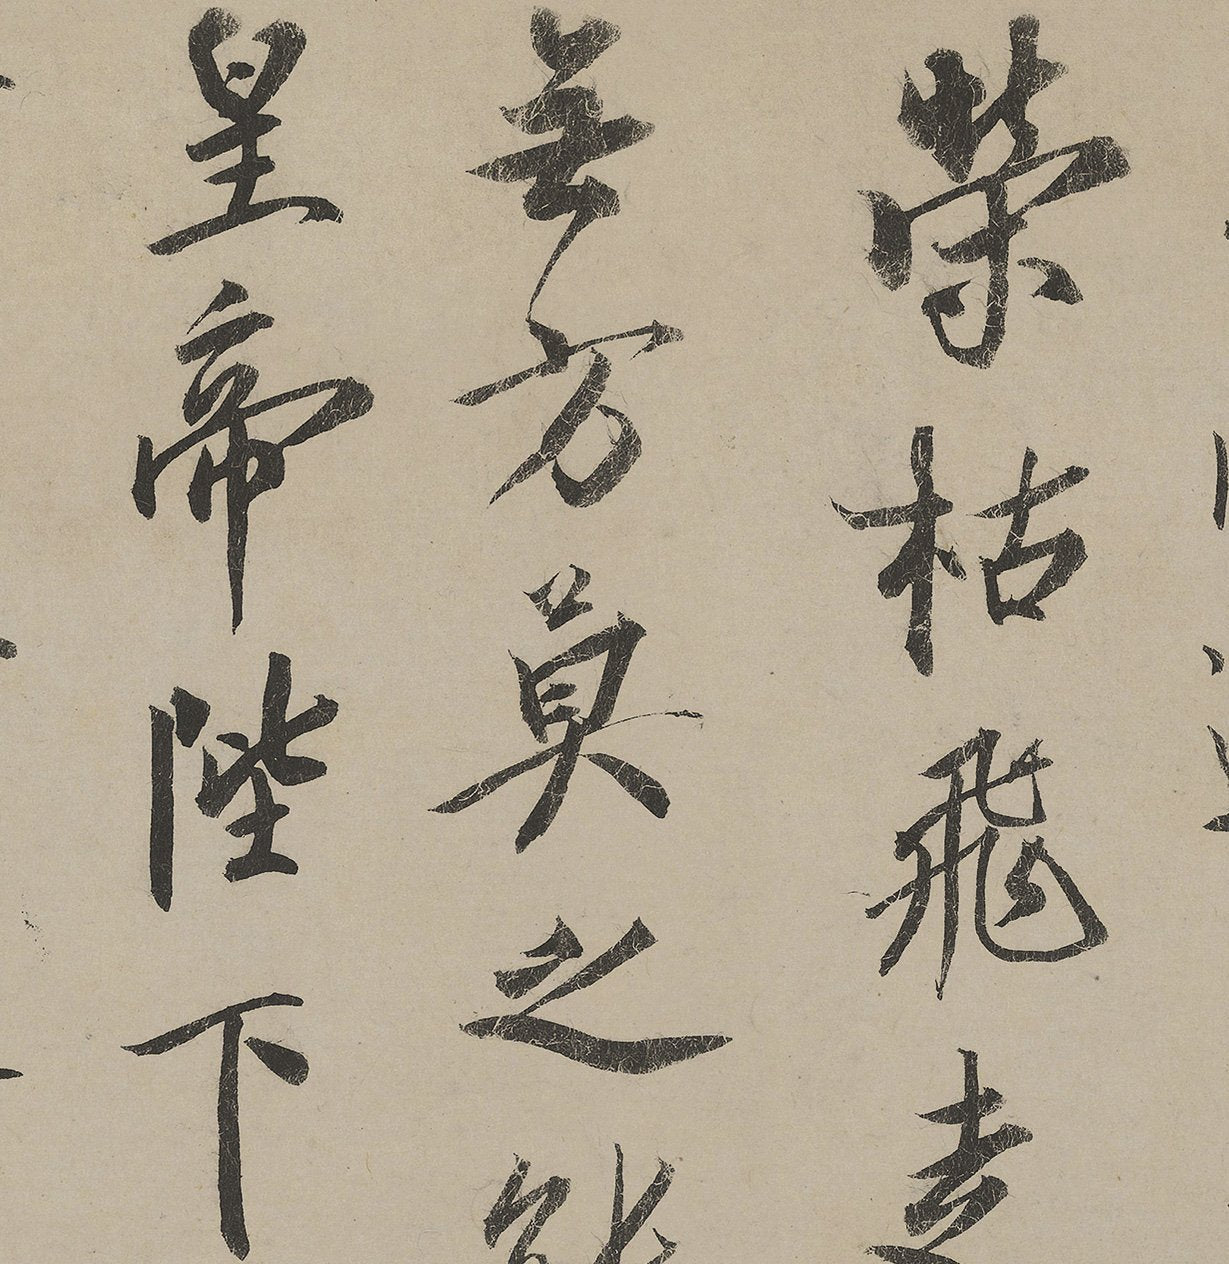 榮枯飛走
無方莫之能
皇帝陛下